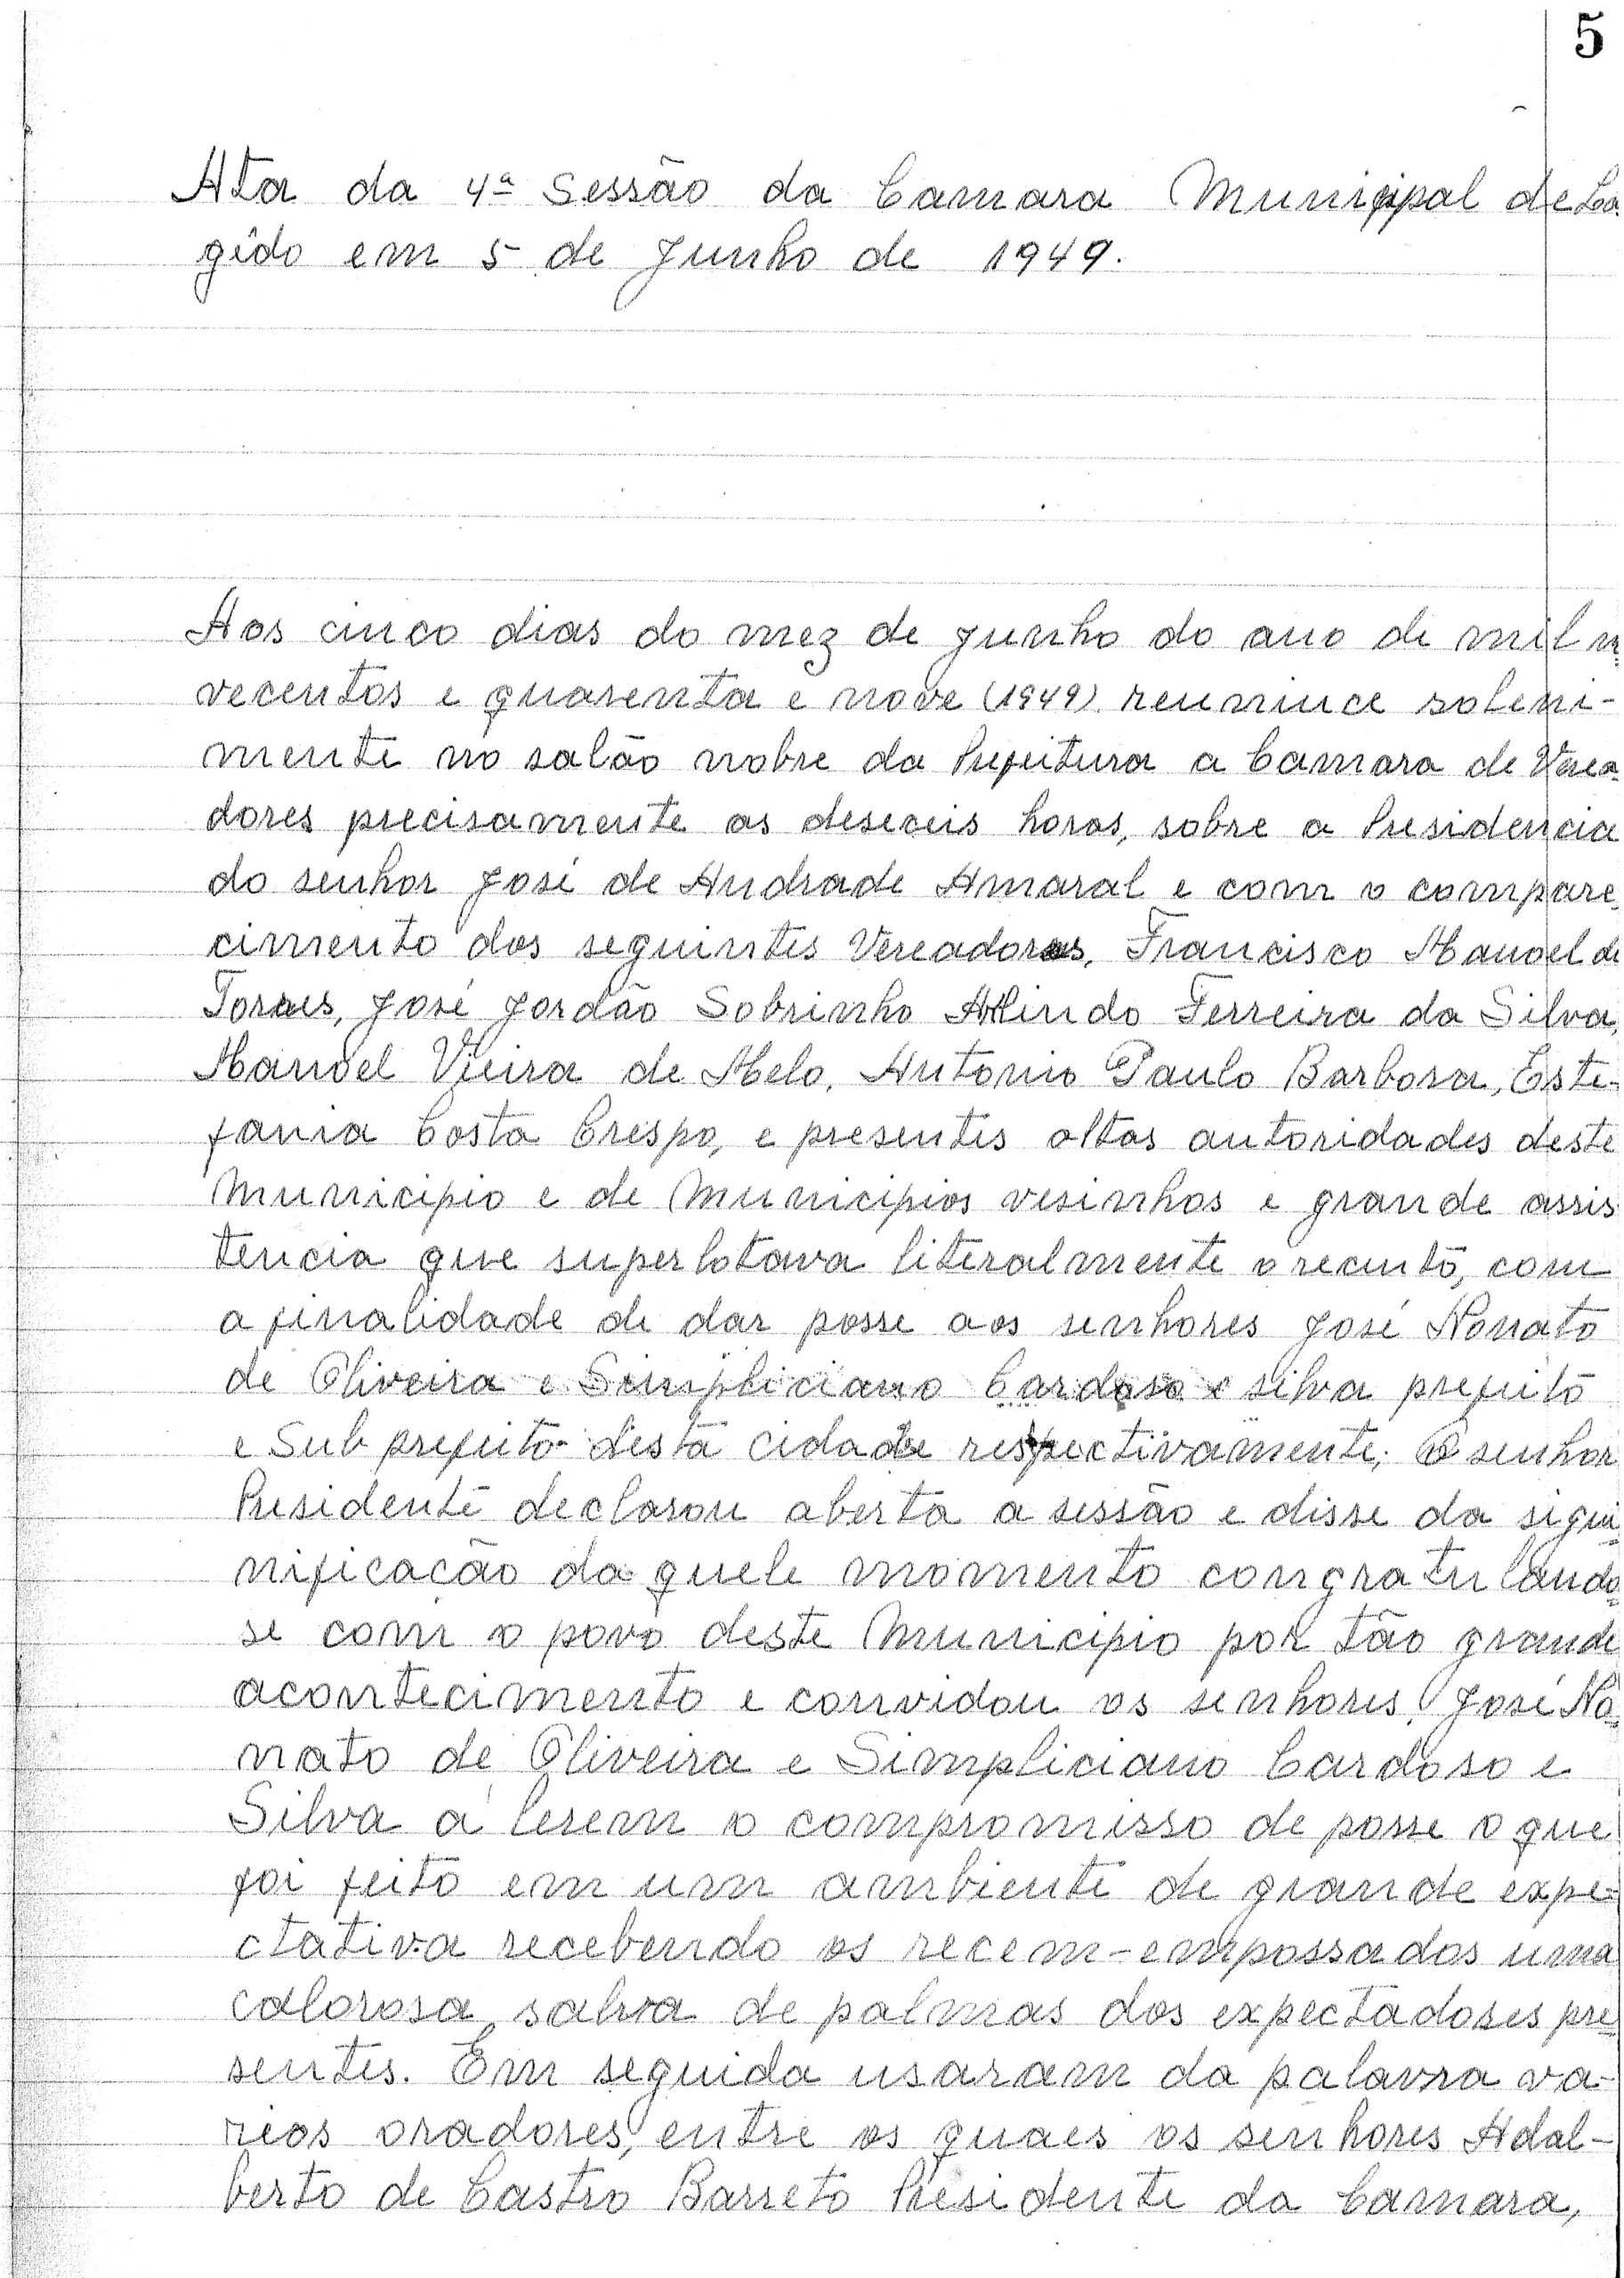 5
Ata da 4ª Sessão da Camara Municipal de La
gêdo em 5 de Junho de 1949.
Aos cinco dias do mez de junho do ano de mil n
vecentos e quarenta e nove (1949) reuniuce soleni-
mente no salão nobre da Prefeitura a Camara de Verea
dores precisamente as deseceis horas, sobre a Presidencia
do senhor José de Andrade Amaral e com o compare
cimento dos seguintes Vereadores, Francisco Manoel de
Torres, José Jordão Sobrinho Arlindo Ferreira da Silva,
Manoel Vieira de Melo, Antonio Paulo Barbosa, Este-
fania Costa Crespo, e presentes altas autoridades deste
Municipio e de Municipios vesinhos e grande assis
tencia que superlotava literalmente o recinto, com
a finalidade de dar posse aos senhores José Nonato
de Oliveira e Simpliciano Cardoso e silva prefeito
e Sub prefeito desta cidade respectivamente; O senhor
Presidente declarou aberta a sessão e disse da sigui
nificacão da quele momento congratulando
se com o povo deste Municipio por tão grande
acontecimento e convidou os senhores José No
nato de Oliveira e Simpliciano Cardoso e
Silva a lerem o compromisso de posse o que
foi feito em um ambiente de grande expe-
ctativa recebendo os recem-empossados uma
calorosa salva de palmas dos expectadores pre
sentes. Em seguida usaram da palavra va-
rios oradores, entre os quaes os senhores Adal-
berto de Castro Barreto Presidente da Camara,